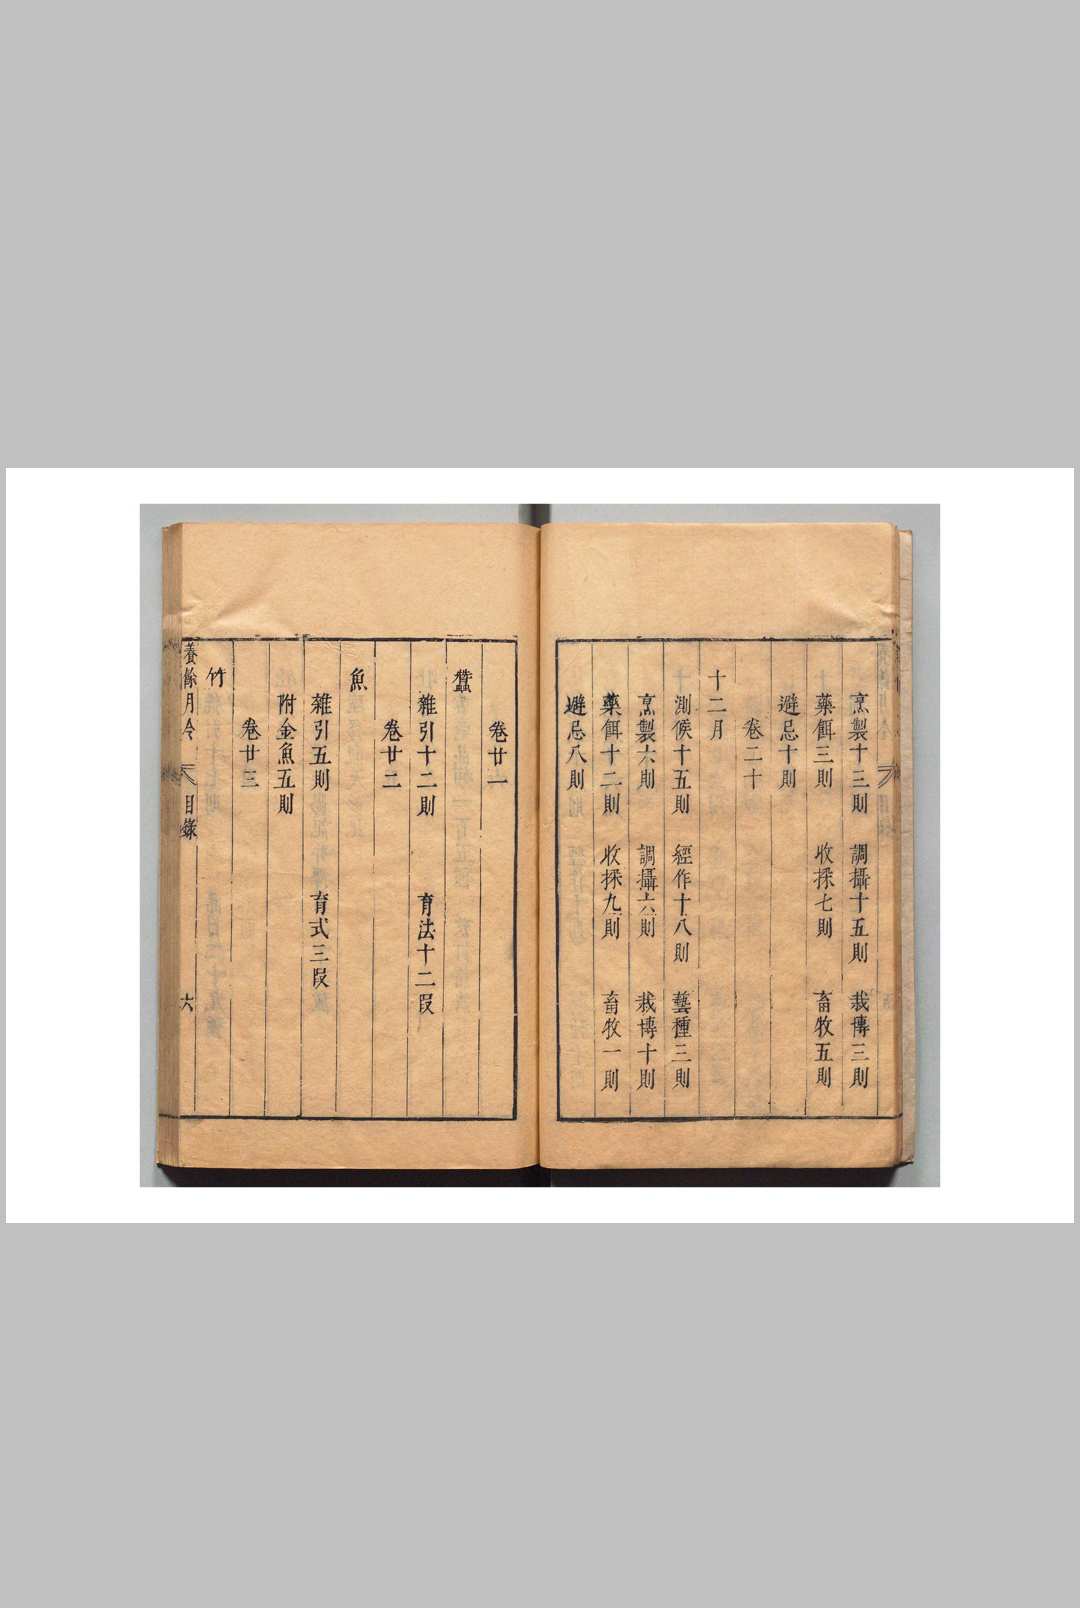 烹製十三則 調攝十五則 栽博三則
藥餌三則 收採七則 畜牧五則
避忌十則
卷二十
十二月
測候十五則 經作十八則 藝種三則
烹製六則 調攝六則 栽博十則
藥餌十二則 收採九則 畜牧一則
避忌八則
卷廿一
蠶
雜引十二則 育法十二段
卷廿二
魚
雜引五則 育式三段
附金魚五則
卷廿三
竹
養餘月令 目錄 六